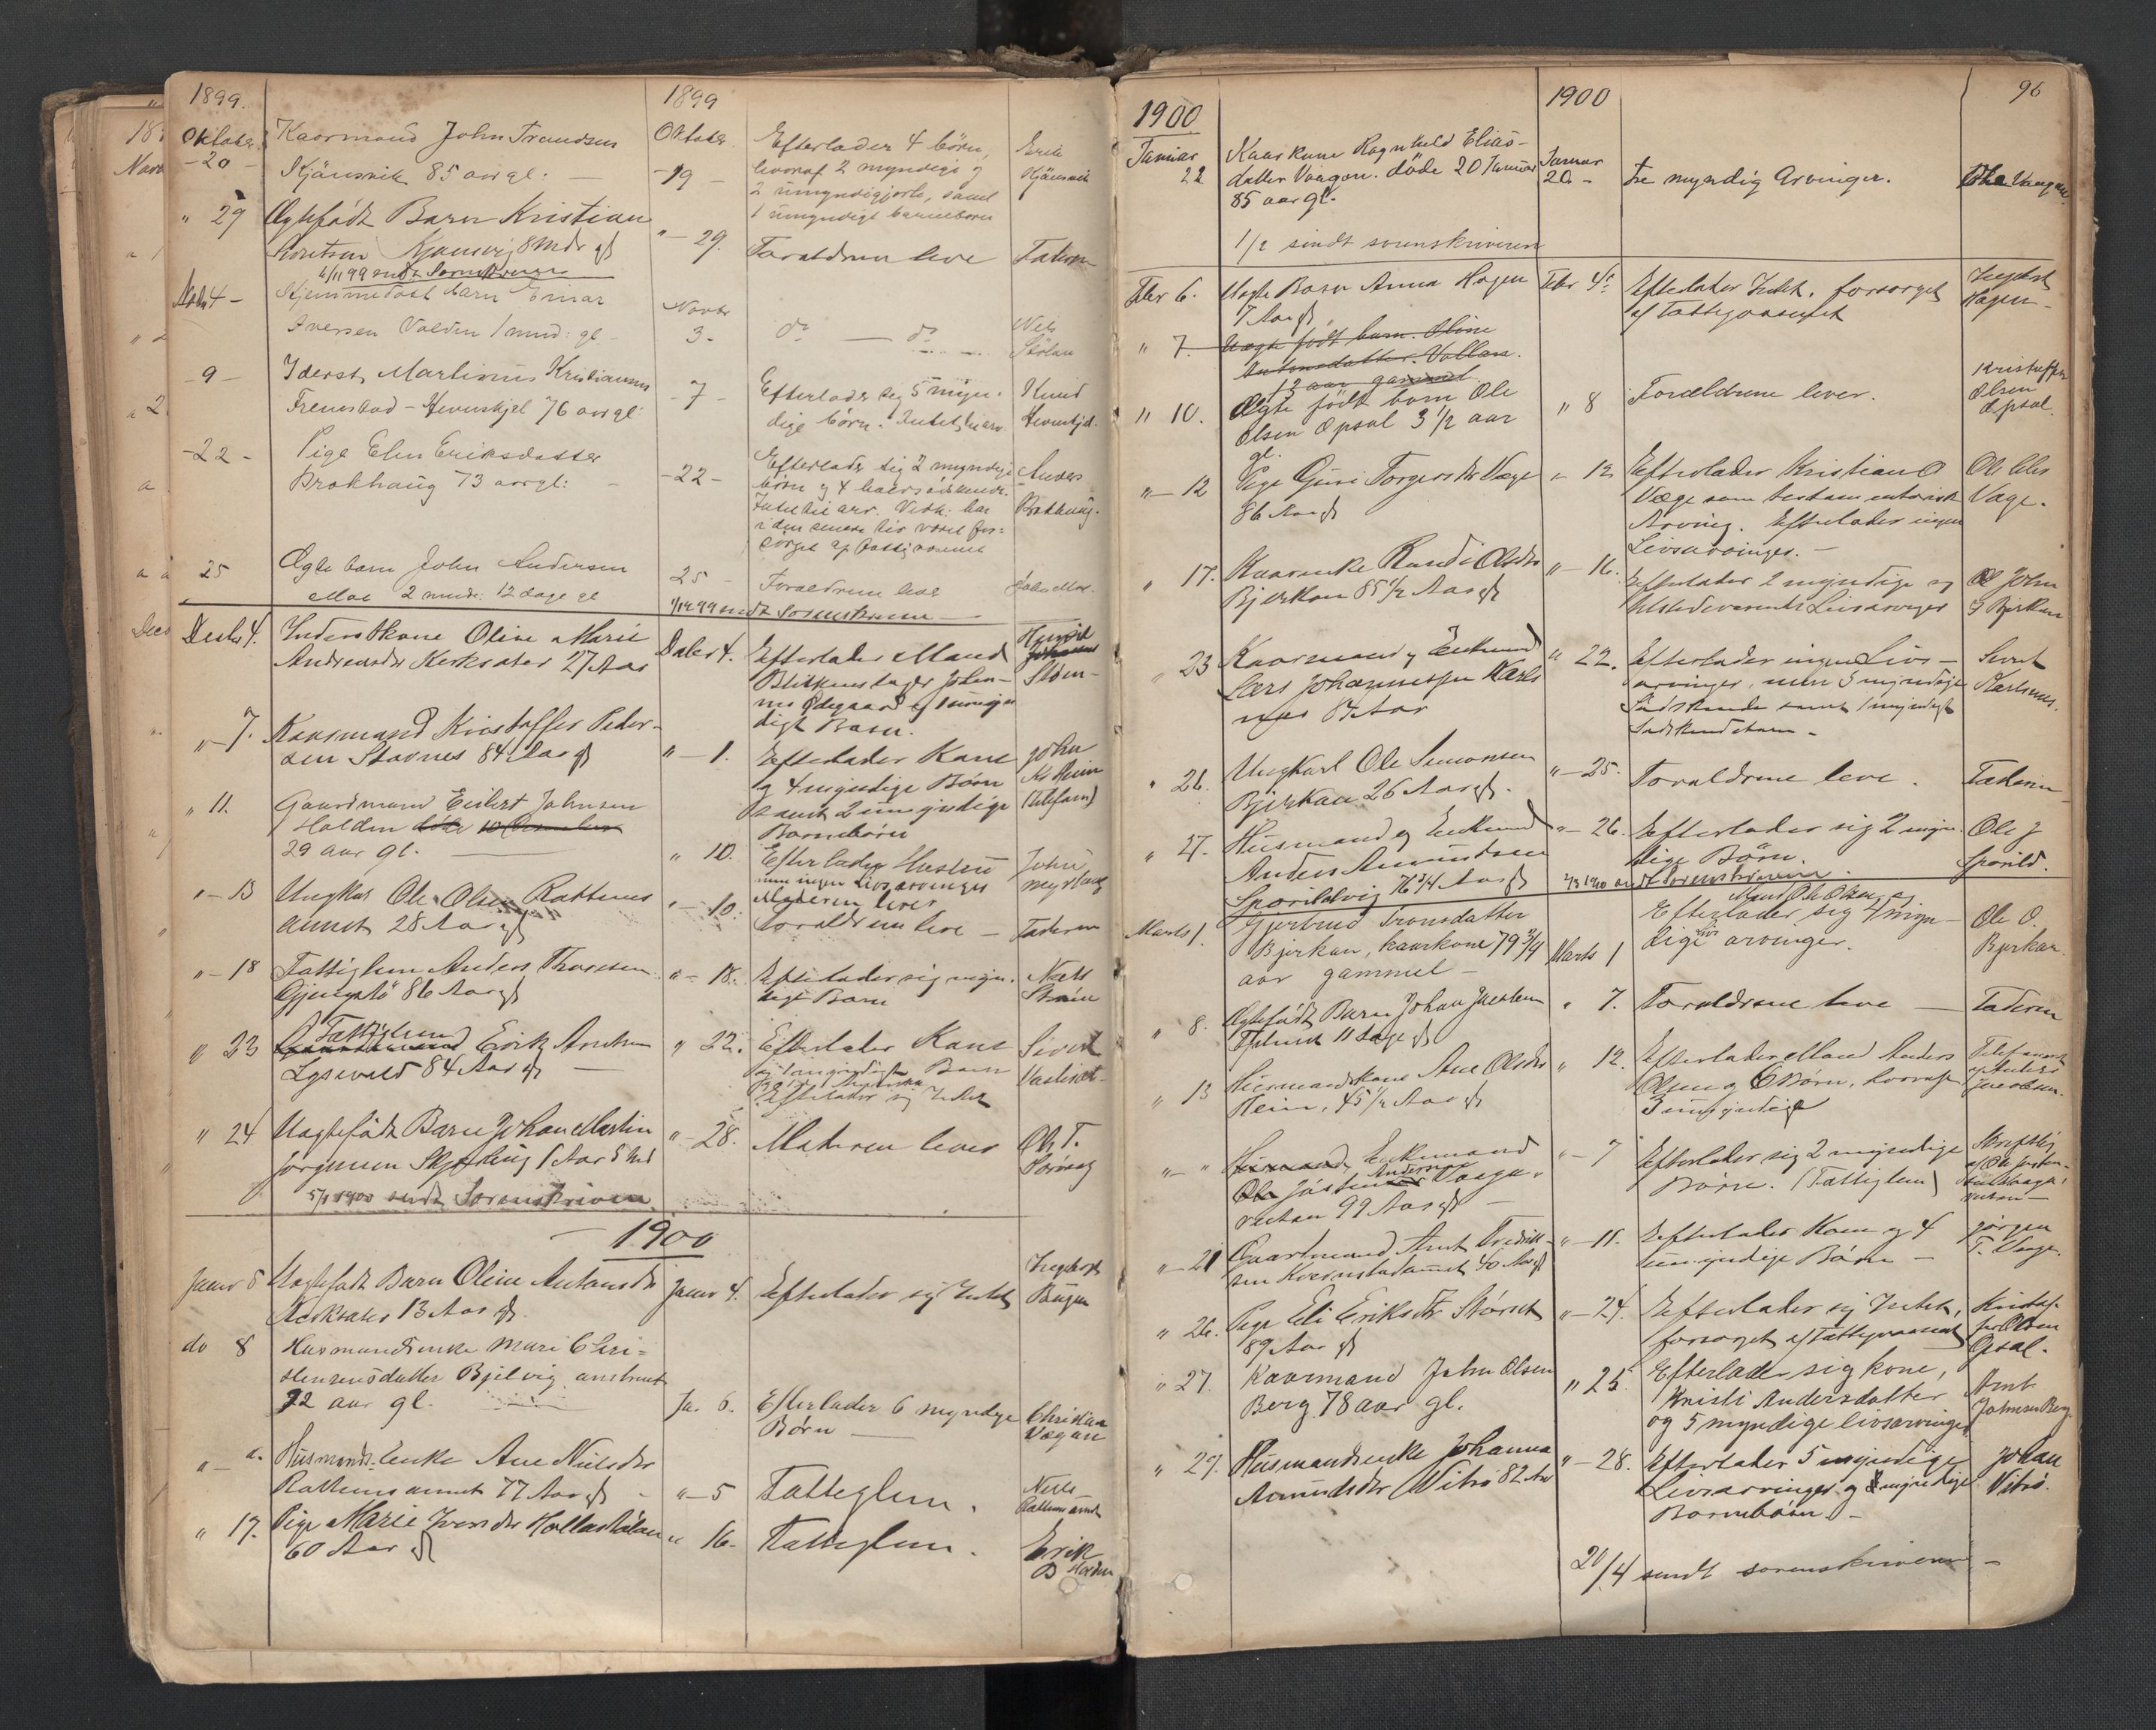 1899.
1899
Oktober
20
Kaarmand John Trondsen
Kjønsvik 85 aar gl:
Oktober
19
Efterlader 4 børn,
hvoraf 2 myndige og
2 umyndigjorte, samt
1 umyndigt barnebarn
Erik
Kjönsvik
" 29
Ægtefødt Barn Kristian
Kjønsvig 8 Mdr gl
" 29.
Forældrene leve
Faderen
6/11 99 sendt Sorenskriveren
4
Hjemmedøbt barn Einar
Iversen Volden 1 mnd: gl
Novbr
3.
do — do
Nils
- 9 -
Iderst Martinus Kristiansen
Fremstad - Hevnskjel 76 aar gl:
- 7 -
Efterlader sig 5 myn-
dige børn. Intet til arv
Knud
Hevnskjel.
- 22 -
Pige Elen Eriksdatter
Brakhaug 73 aar gl:
- 22 -
Efterlader sig 2 myndige
børn og 4 halvsødskende.
Intet til arv. Vedk: har
i den senere tid været for-
sørget af fattigvæsenet
Anders
Brakhaug.
25
Ægte barn John Andersen
Moe 2 mndr. 12 dage gl
25
Forældrene leve
John Moe.
1/12 99 sendt Sorenskriveren
Decbr 4.
Inderstkone Oline Marie
Andreasdr Kerksæter 27 Aar
Decbr 4.
Efterlader Mand
Blikkenslager Johan-
nes Ødegaard og 1 umyn
digt Barn.
" 7.
Kaarmand Kristoffer Peder-
sen Stavnes 84 Aar gl
" 1.
Efterlader Kone
og 4 myndige Børn
samt 2 umyndige
Børnebørn
John
(Telefon)
" 11.
Gaardmand Eilert Johnsen
Holden døde 10 December
29 aar gl.
" 10.
Efterlader Hustru
men ingen Livsarvinger
Moderen lever
John
" 13
Ungkar Ole Olsen Rottems
aunet 28 Aar gl
" 10.
Forældrene leve
Faderen
" 18
Fattiglem Anders Thoresen
Gjengstø 86 Aar gl
" 18.
Efterlader sig myn.
digt Barn
" 23
Fattiglem
Erik Arntsen
Lysevold 84 Aar gl
" 22.
Efterlader Kone
og 1 umyndigt Barn
Efterlader sig Intet
Sivert
" 24
Uægtefødt Barn Johan Martin
Jørgensen 1 Aar 8 Md
" 28.
Moderen lever
Ole T.
5/1 1900 sendt Sorenskriveren
1900
Januar 5
Uægtefødt Barn Oline Antonsdr
Kerksæter 13 Aar gl.
Januar 4.
Efterlader sig Intet
Ingebrigt
Haugen
do 8
Husmandsenke Mari Chri-
stensensdatter Bjelvig anstrent
72 aar gl.
Ja. 6.
Efterlader 6 myndige
Børn
Christian
Vaagan
Husmands-Enke Ane Nilsdr
Rottems aunet 77 Aar gl
" 5
Fattiglem.
Nils
Rottems aunet
" 17.
Pige Marie Iversdr Hollastølan
60 Aar gl
" 16.
Fattiglem.
Erik
B Holden
96
1900
1900
Januar
22
Kaarkone Ragnhild Elias-
datter Vaagan. døde 20 Januar
85 aar gl.
Januar
20 -
Tre myndig Arvinger.
Ole Vaagan.
1/2 sendt sorenskriveren
Febr 6.
Uægte Barn Anna Hagen
7 Aar gl.
Febr 4de
Efterlader Intet. forsørget
af Fattigvæsenet
Ingebrigt
Hagen
" 7.
Uægte født barn. Oline
Antonsdatter. Vollan.
13 aar gammel
" 10.
Ægte født barn Ole
Olsen Opsal 3 1/2 aar
gl.
" 8
Forældrene lever.
Kristoffer
Olsen
Opsal.
" 12
Pige Guri Torgersdr Vaage
86 Aar gl
" 12
Efterlader Kristian O
Vaage som testamentarisk
Arving. Efterlader ingen
Livsarvinger.
Vaage.
" 17.
Kaarenke Randi Olsdr
Bjerkan 85 1/2 Aar gl
" 16.
Efterlader 2 myndige og
tilstedeværende Livsarvinger
John
Bjerkan
" 23
Kaarmand og Enkemand
Lars Johannessen Karls
nes 87 Aar
" 22.
Efterlader ingen Livs-
arvinger, men 3 myndige
Sødskende samt 1 myndigt
Sødskendebarn.
Sivert
Karlsnes.
" 26.
Ungkarl Ole Simonsen
Bjerkan 26 Aar gl.
" 25.
Forældrene leve.
Faderen
" 27.
Husmand og Enkemand
Anders Amundsen
Sporildvig 76 3/4 Aar gl
" 26.
Efterlader sig 2 myn-
dige Børn.
Ole J
Sporild.
2/3 1900 sendt Sorenskriveren.
Marts 1.
Gjertrud Tronsdatter
Bjerkan, kaarkone 79 3/4
aar gammel -
Marts 1
Mand Ole Olsen, og
Efterlader sig 4 myn-
dige livs arvinger.
Ole O.
Bjerkan.
" 8.
Ægtefødt Barn Johan Jacobsen
11 dage gl
" 7.
Forældrene leve
Faderen
" 13
Husmandskone Ane Olsdr
Heim, 45 1/2 Aar gl
" 12.
Efterlader Mand Anders
Olsen og 6 Børn, hvoraf
3 umyndige
Jacobsen.
Enkemand
Andersen
Vaaga-
99 Aar gl
" 7
Efterlader sig 2 myndige
Børn. (Fattiglem)
Skriftlig
" 21
Gaardmand Arnt Fredrik-
sen Kvernstadaunet 40 Aar gl
" 11.
Efterlader Kone og 4
umyndige Børn -
Jørgen
T. Vaage.
" 26.
Pige Eli Eriksdr Størset
89 Aar gl
" 24.
Efterlader sig Intet,
forsørget af Fattigvæsenet
Kristof-
fer Olsen
Opsal.
" 27.
Kaarmand John Olsen
Berg 78 aar gl.
" 25.
Efterlader sig kone,
Kristi Andersdatter
og 5 myndige livsarvinger
Arnt
Johnsen Berg
" 29.
Husmandsenke Johanna
Amundsdr Vitsø 82 Aar
" 28.
Efterlader 5 myndige
Livsarvinger og myndige
Børnebørn.
Johan
Vitsø.
20/4 sendt sorenskriveren -